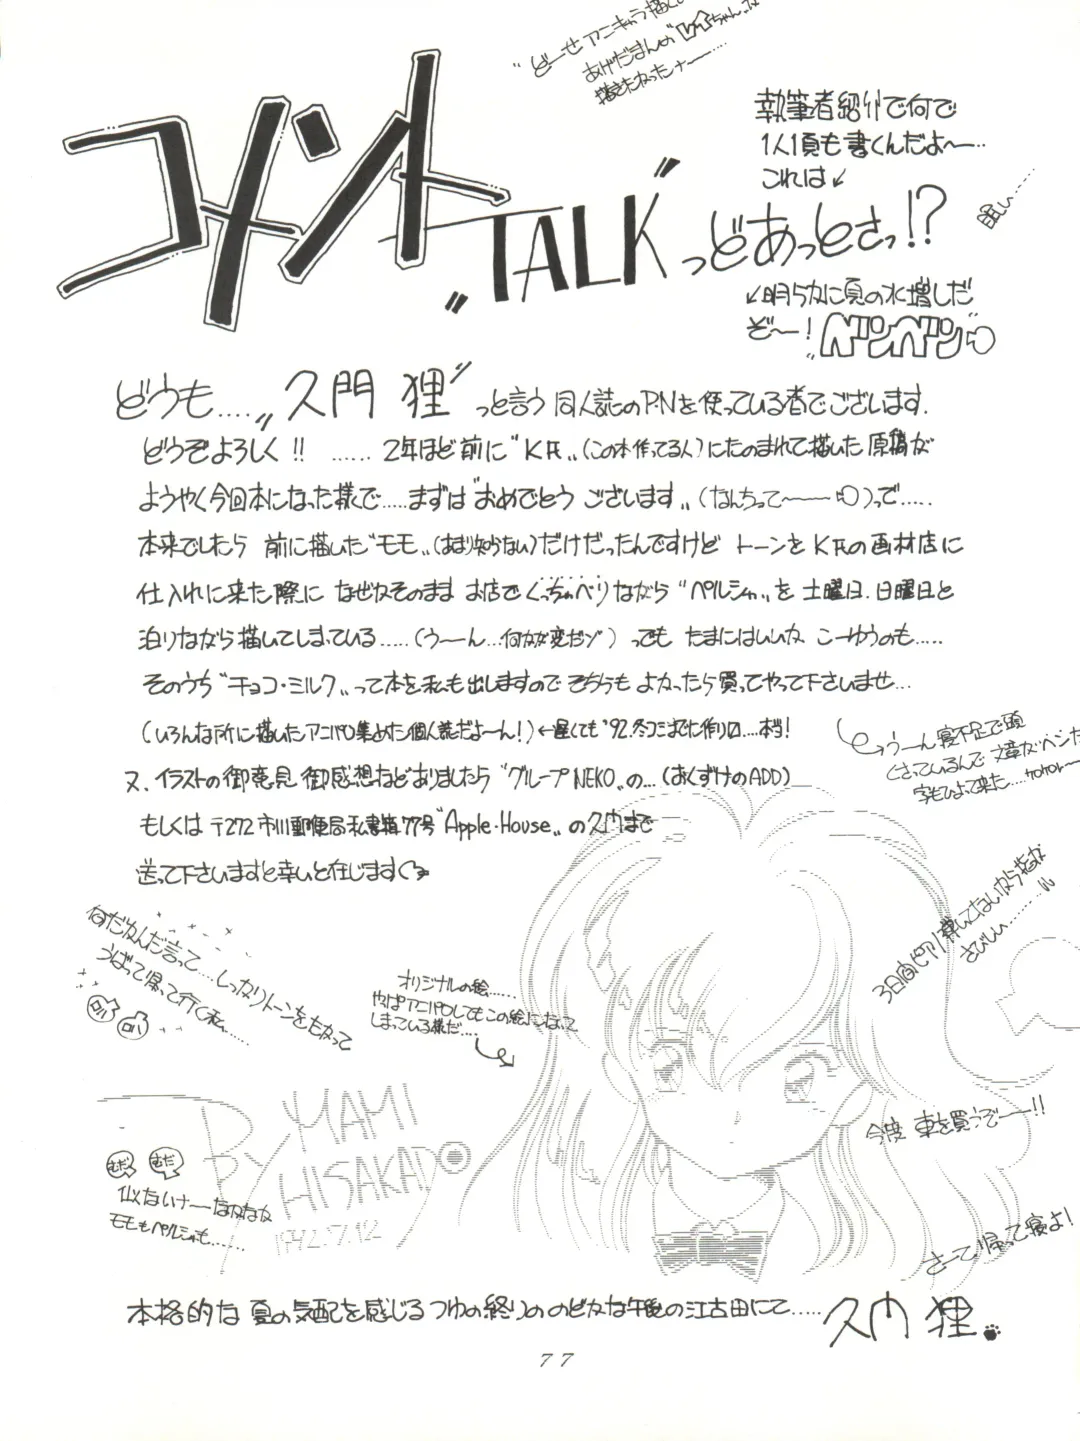 "どーせアニキャラ描く
あげだまんの"ちゃん"が
描きたかったナー……
コメント
"TALK"っどあっとさっ!?
執筆者紹介で何で
1人1頁も書くんだよ〜…
これは↙
眠い……
↙明らかに頁の水増しだ
ぞ〜!ペンペン
どうも...."久門 狸"っと言う同人誌のP.Nを使っている者でございます.
どうぞよろしく!! ……2年ほど前に"K氏"(この本作ってる人)にたのまれて描いた原稿が
ようやく今回本になった様で.....まずは"おめでとうございます"(なんちって〜〜)って.....
本来でしたら 前に描いた"モモ"(あまり知らない)だけだったんですけど トーンをK氏の画材店に
仕入れに来た際に なぜかそのまま お店でくっちゃべりながら "ペルシャ"を 土曜日.日曜日と
泊りながら描いてしまっている.....(う〜ん...何かが変だゾ)っでも たまにはいいかこーゆうのも.....
そのうち"チョコ・ミルク"って本を私も出しますのでそちらもよかったら買ってやって下さいませ...
(いろんな所に描いたアニパロ集めた個人誌だよ〜ん!)←遅くても'92.冬コミまでに作りロ....本当!
又、イラストの御意見 御感想などありましたら"グループNEKO"の...(おくずけのADD)
もしくは 〒272 市川郵便局私書箱77号"Apple・House"の久門まで
送って下さいますと幸いと在じます
う〜ん寝不足で頭
くさっているんで文章がヘンだ
字もひよって来た....ケロケロ〜
何だかんだ言って...しっかりトーンをもらって
うばって帰って行く私....
オリジナルの絵......
やっぱアニパロしてもこの絵になって
しまっている様だ....
3日間ピアノ弾いてないから指が
さびしい………
BY MAMI
HISAKADO
1992.7.12
むだ むだ
似てないナーなかなか
モモもペルシャも.......
今度 車を買うぞ〜!!
さーて帰って寝よ!
本格的な 夏の気配を感じるつゆの終りの のどかな午後の江古田にて.....久門 狸.
77